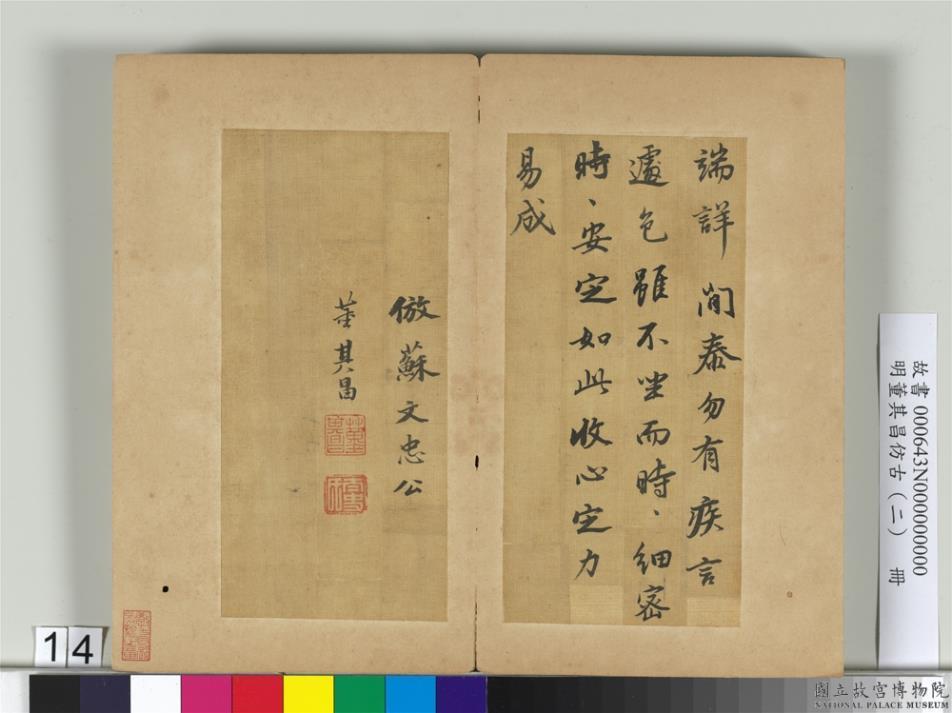 端詳閒泰勿有疾言
遽色雖不坐而時、細密
時、安定如此收心定力
易成
倣蘇文忠公
董其昌
故書 000643N000000000
明董其昌仿古（二） 冊
14
國立故宮博物院
NATIONAL PALACE MUSEUM